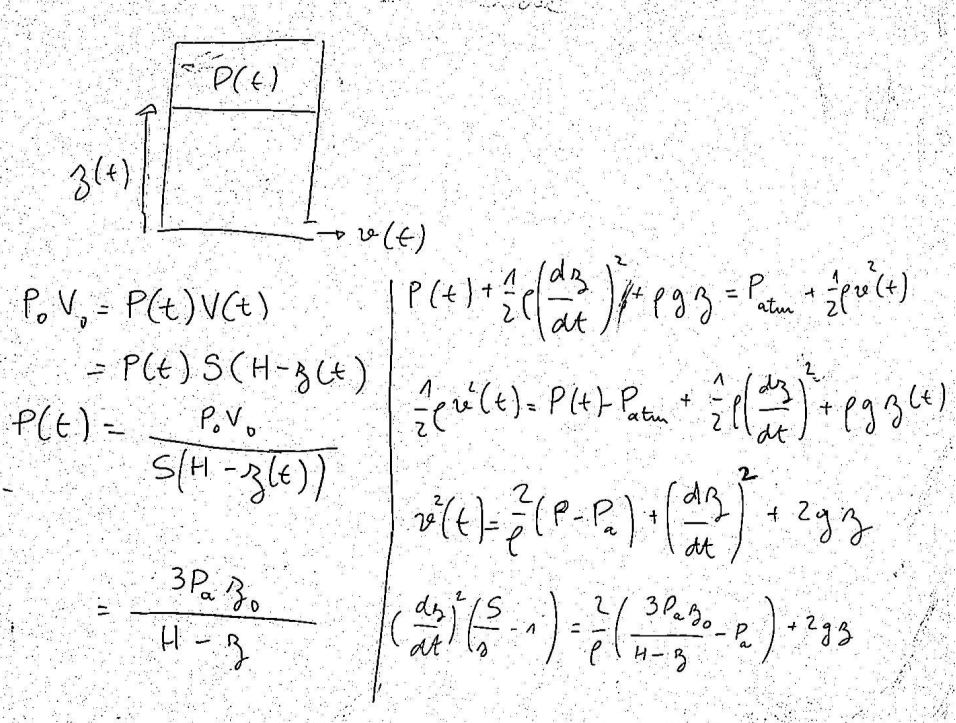 P(t)
z(t)
v(t)
P₀ V₀ = P(t) V(t)
= P(t) S(H - z(t)
P(t) = P₀V₀ / S(H - z(t))
= 3Pₐ z₀ / H - z
P(t) + 1/2 ρ(dz/dt)² + ρ g z = P_atm + 1/2 ρv²(t)
1/2 ρ v²(t) = P(t) - P_atm + 1/2 ρ(dz/dt)² + ρ g z(t)
v²(t) = 2/ρ (P - Pₐ) + (dz/dt)² + 2 g z
(dz/dt)² (S/s - 1) = 2/ρ (3Pₐz₀ / H - z - Pₐ) + 2 g z